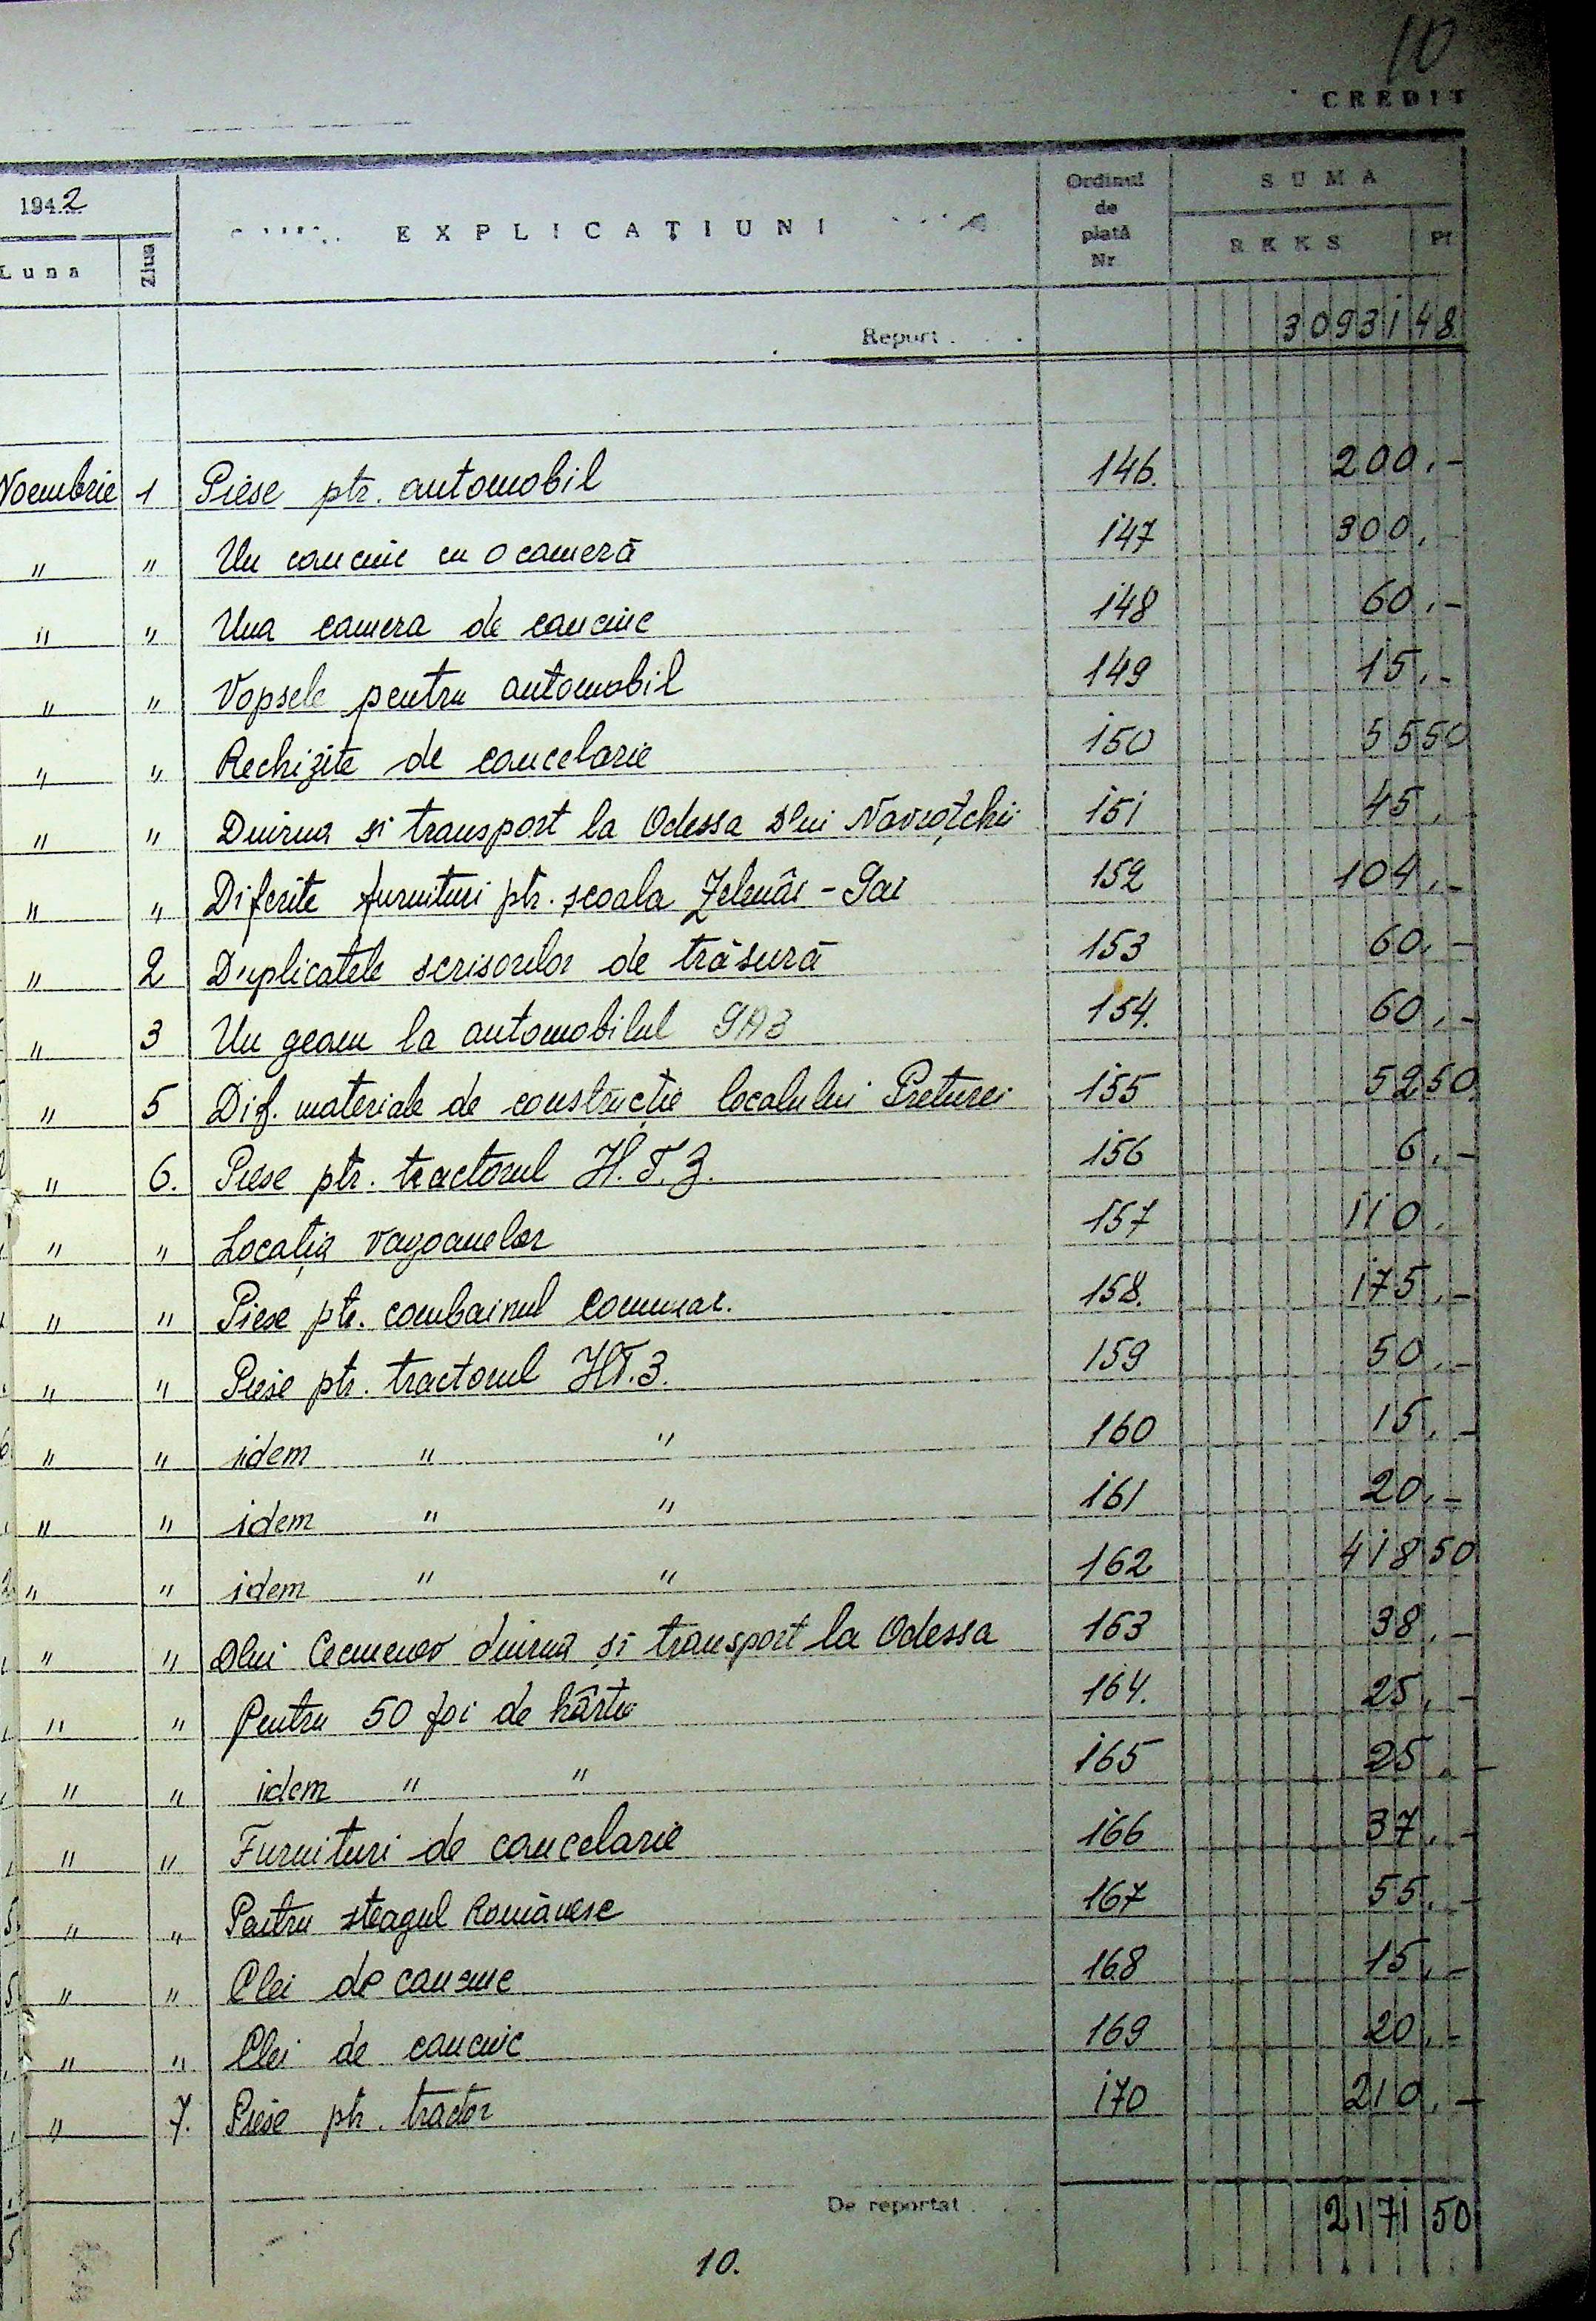 10
CREDIT
1942 EXPLICAȚIUNI Ordinul de plată Nr SUMA
Luna Ziua RKKS Pf
Report 30931 48
Noembrie 1 Piese ptr. automobil 146. 200.-
" " Un cauciuc cu o cameră 147 300.-
" " Una camera de cauciuc 148 60.-
" " Vopsele pentru automobil 149 15.-
" " Rechizite de cancelarie 150 55 50
" " Diurna și transport la Odessa Dlui Navroțchii 151 45.
" " Diferite furnituri ptr. școala Zelenâi-Gai 152 104.-
" 2 Duplicatele scrisorilor de trăsură 153 60.-
" 3 Un geam la automobilul GAZ 154. 60.-
" 5 Dif. materiale de construcție localului Preturei 155 52 50
" 6. Piese ptr. tractorul H.T.Z. 156 6.-
" " Locația vagoanelor 157 110.
" " Piese ptr. combainul Communar. 158. 175.-
" " Piese ptr. tractorul HT.3. 159 50.-
" " idem " " 160 15.-
" " idem " " 161 20.-
" " idem " " 162 418 50
" " Dlui diurna și transport la Odessa 163 38.-
" " Pentru 50 foi de hârtie 164. 25.-
" " idem " " 165 25.-
" " Furnituri de cancelarie 166 37.-
" " Pentru steagul Românesc 167 55.-
" " Clei de cauciuc 168 15.-
" " Clei de cauciuc 169 20.-
" 7. Piese ptr. tractor 170 210.-
De reportat 2171 50
10.